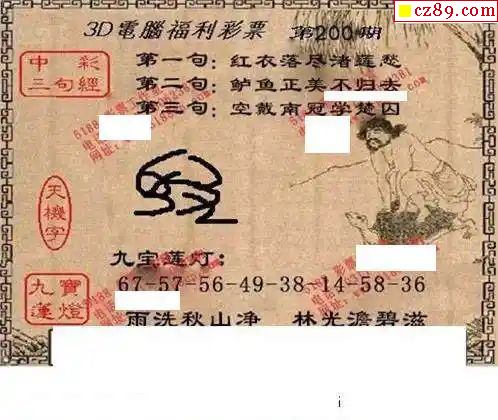 cz89.com
3D電腦福利彩票 第200期
中彩
三句經
第一句：红衣落尽渚莲愁
第二句：鲈鱼正美不归去
第三句：空戴南冠学楚囚
天機字
九宝莲灯：
九寶蓮燈
67-57-56-49-38-14-58-36
雨洗秋山净 林光澹碧滋
i